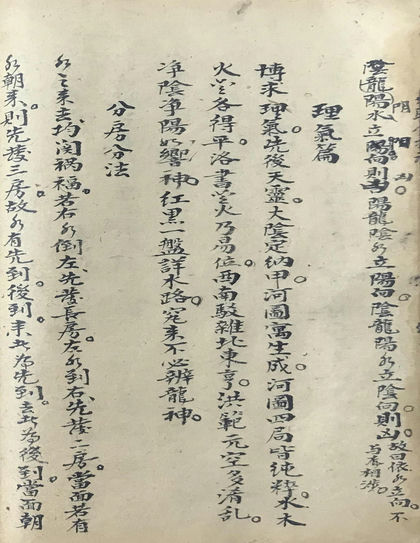 陰龍陽水立陽向則吉陽龍陰水立陽向陰龍陽水立陰向則凶故曰依水立向不
與香相涉
理氣篇
博求理氣先後天靈大陰定納甲河圖寓生成河圖四局皆純粹水木
火金各得平洛書金火乃易位西南駁雜北東亨洪範元空多淆乱
净陰净陽如響神紅黑一盤詳水路完來不必辨龍神
分房分法
水之來去均関禍福若右水倒左先發長房左水到右先發二房當面若有
水朝來則先發三房故水有先到後到來此為先到去此為後到當面朝